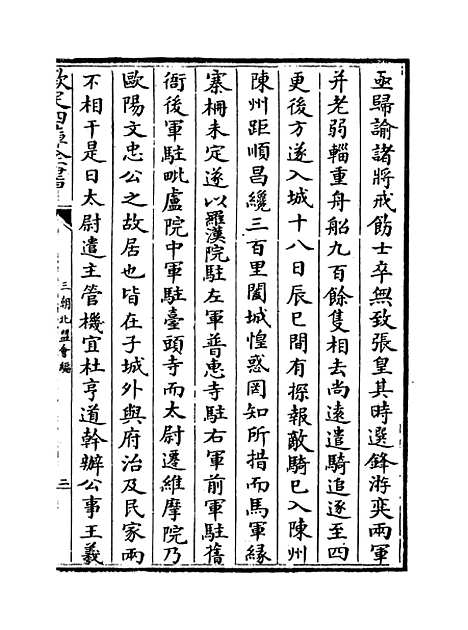 亟歸諭諸將戒飭士卒無致張皇其時選鋒游奕兩軍
并老弱輜重舟船九百餘隻相去尚遠遣騎追逐至四
更後方遂入城十八日辰巳間有探報敵騎已入陳州
陳州距順昌纔三百里闔城惶惑罔知所措而馬軍緣
寨柵未定遂以羅漢院駐左軍普惠寺駐右軍前軍駐舊
衙後軍駐毗盧院中軍駐臺頭寺而太尉遷維摩院乃
歐陽文忠公之故居也皆在子城外與府治及民家兩
不相干是日太尉遣主管機宜杜亨道幹辦公事王羲
欽定四庫全書
三朝北盟會編
三